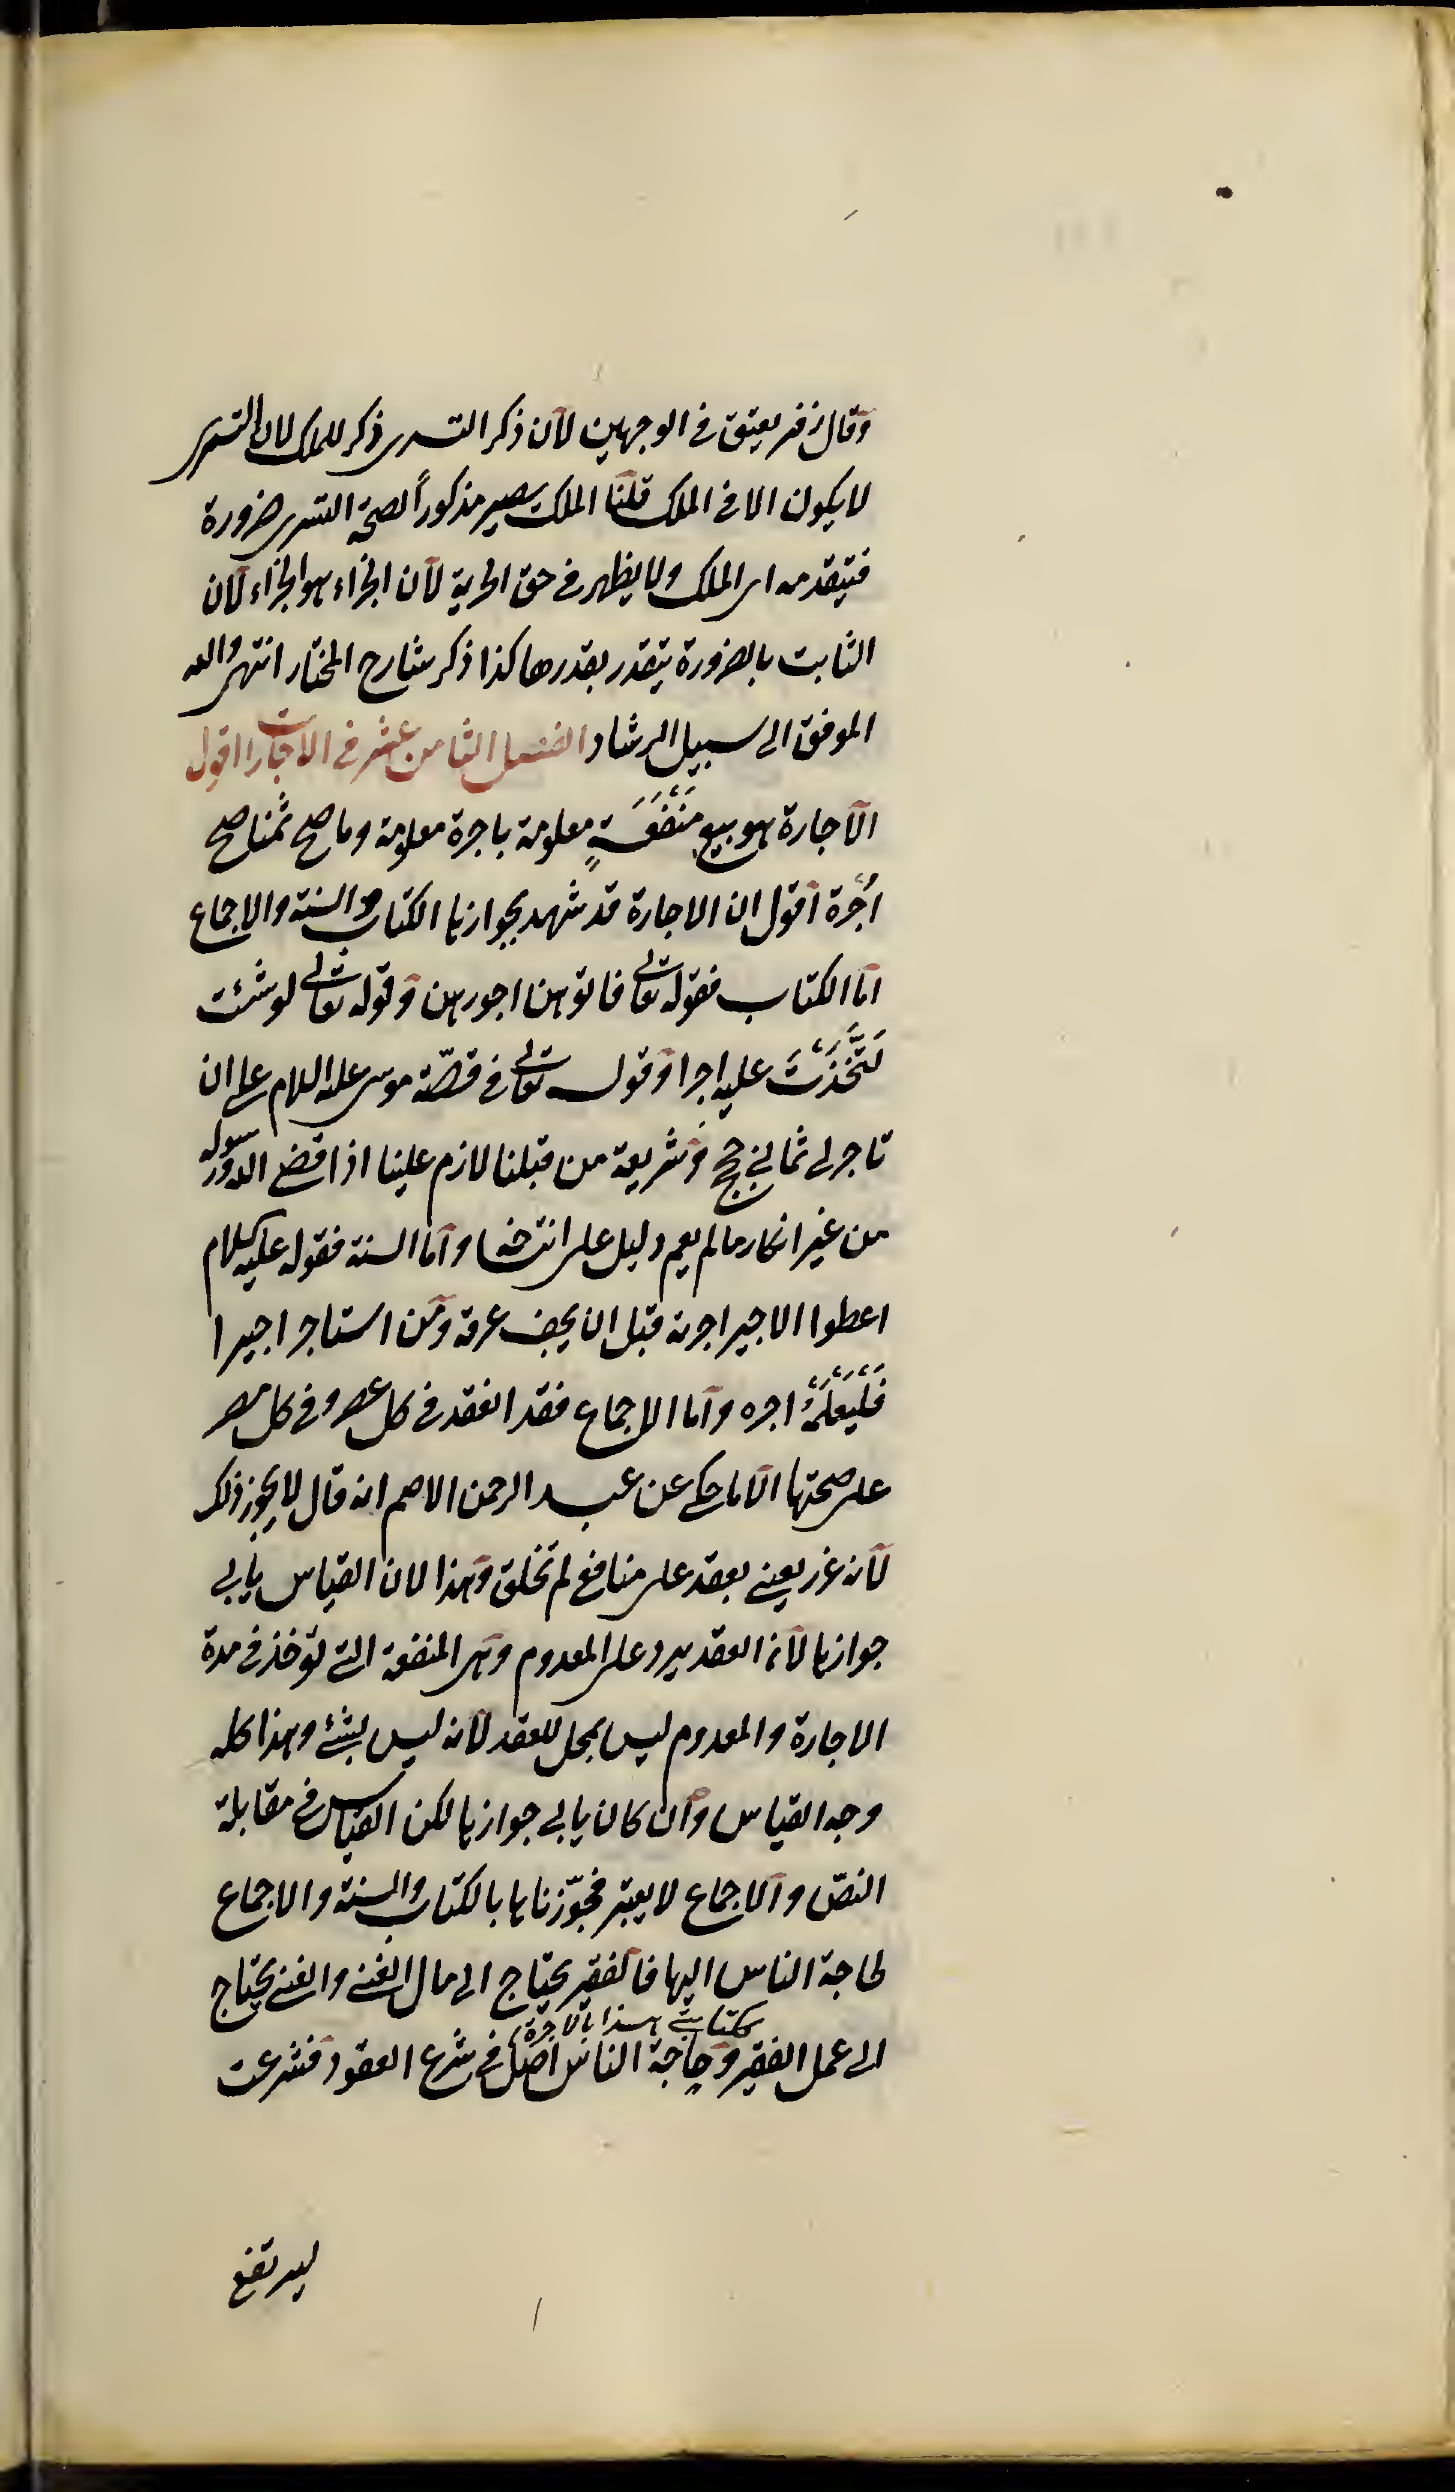 وقال زفر يعتق في الوجهين لان ذكر التسرى ذكر للملك لان التسرى
لا يكون الا في الملك قلنا الملك يصير مذكوراً لصحة التسرى ضرورة
فيتقدمه اى الملك ولا يظهر في حق الحرية لان الجزاء هو الجزاء لان
الثابت بالضرورة يتقدر بقدرها كذا ذكر شارح المختار انتهى والله
الموفق الى سبيل الرشاد الفصل الثامن عشر في الاجارات اقول
الاجارة هو بيع مَنْفَعَةٍ معلومة باجرة معلومة وما صح ثمنا صح
اُجْرة اقول ان الاجارة قد شهد بجوازها الكتاب والسنة والاجماع
اما الكتاب فقوله تعالى فاتوهن اجورهن وقوله تعالى لو شئت
لَتَّخَذْتَ عليه اجرا وقوله تعالى في قصّة موسى عليه السلام على ان
تاجرلى ثمانى حجج وشريعة من قبلنا لازم علينا اذا قص الله ورسوله
من غير انكار ما لم يعم دليل على انتسخها واما السنة فقوله عليه السلام
اعطوا الاجير اجرته قبل ان يجف عرقه ومن استاجر اجيرا
فَلْيُعْلِمْهُ اجره واما الاجماع فقد انعقد في كل عصر وفي كل مصر
على صحتها الا ما حكى عن عبد الرحمن الاصم انه قال لا يجوز ذلك
لانه غرر يعنى يعقد على منافع لم تخلق وهذا لان القياس يابى
جوازها لان العقد يرد على المعدوم وهى المنفعة التى توخذ في مدة
الاجارة والمعدوم ليس بمحل للعقد لانه ليس بشئ وهذا كله
وجه القياس وان كان يابى جوازها لكن القياس في مقابلة
النصّ والاجماع لا يعتبر فجوّزناها بالكتاب والسنة والاجماع
لحاجة الناس اليها فالفقير يحتاج الى مال الغنى والغنى يحتاج
كتابتى هذا بالاجرة
الى عمل الفقير وحاجة الناس اصل في شرع العقود فشرعت
ليرتفع